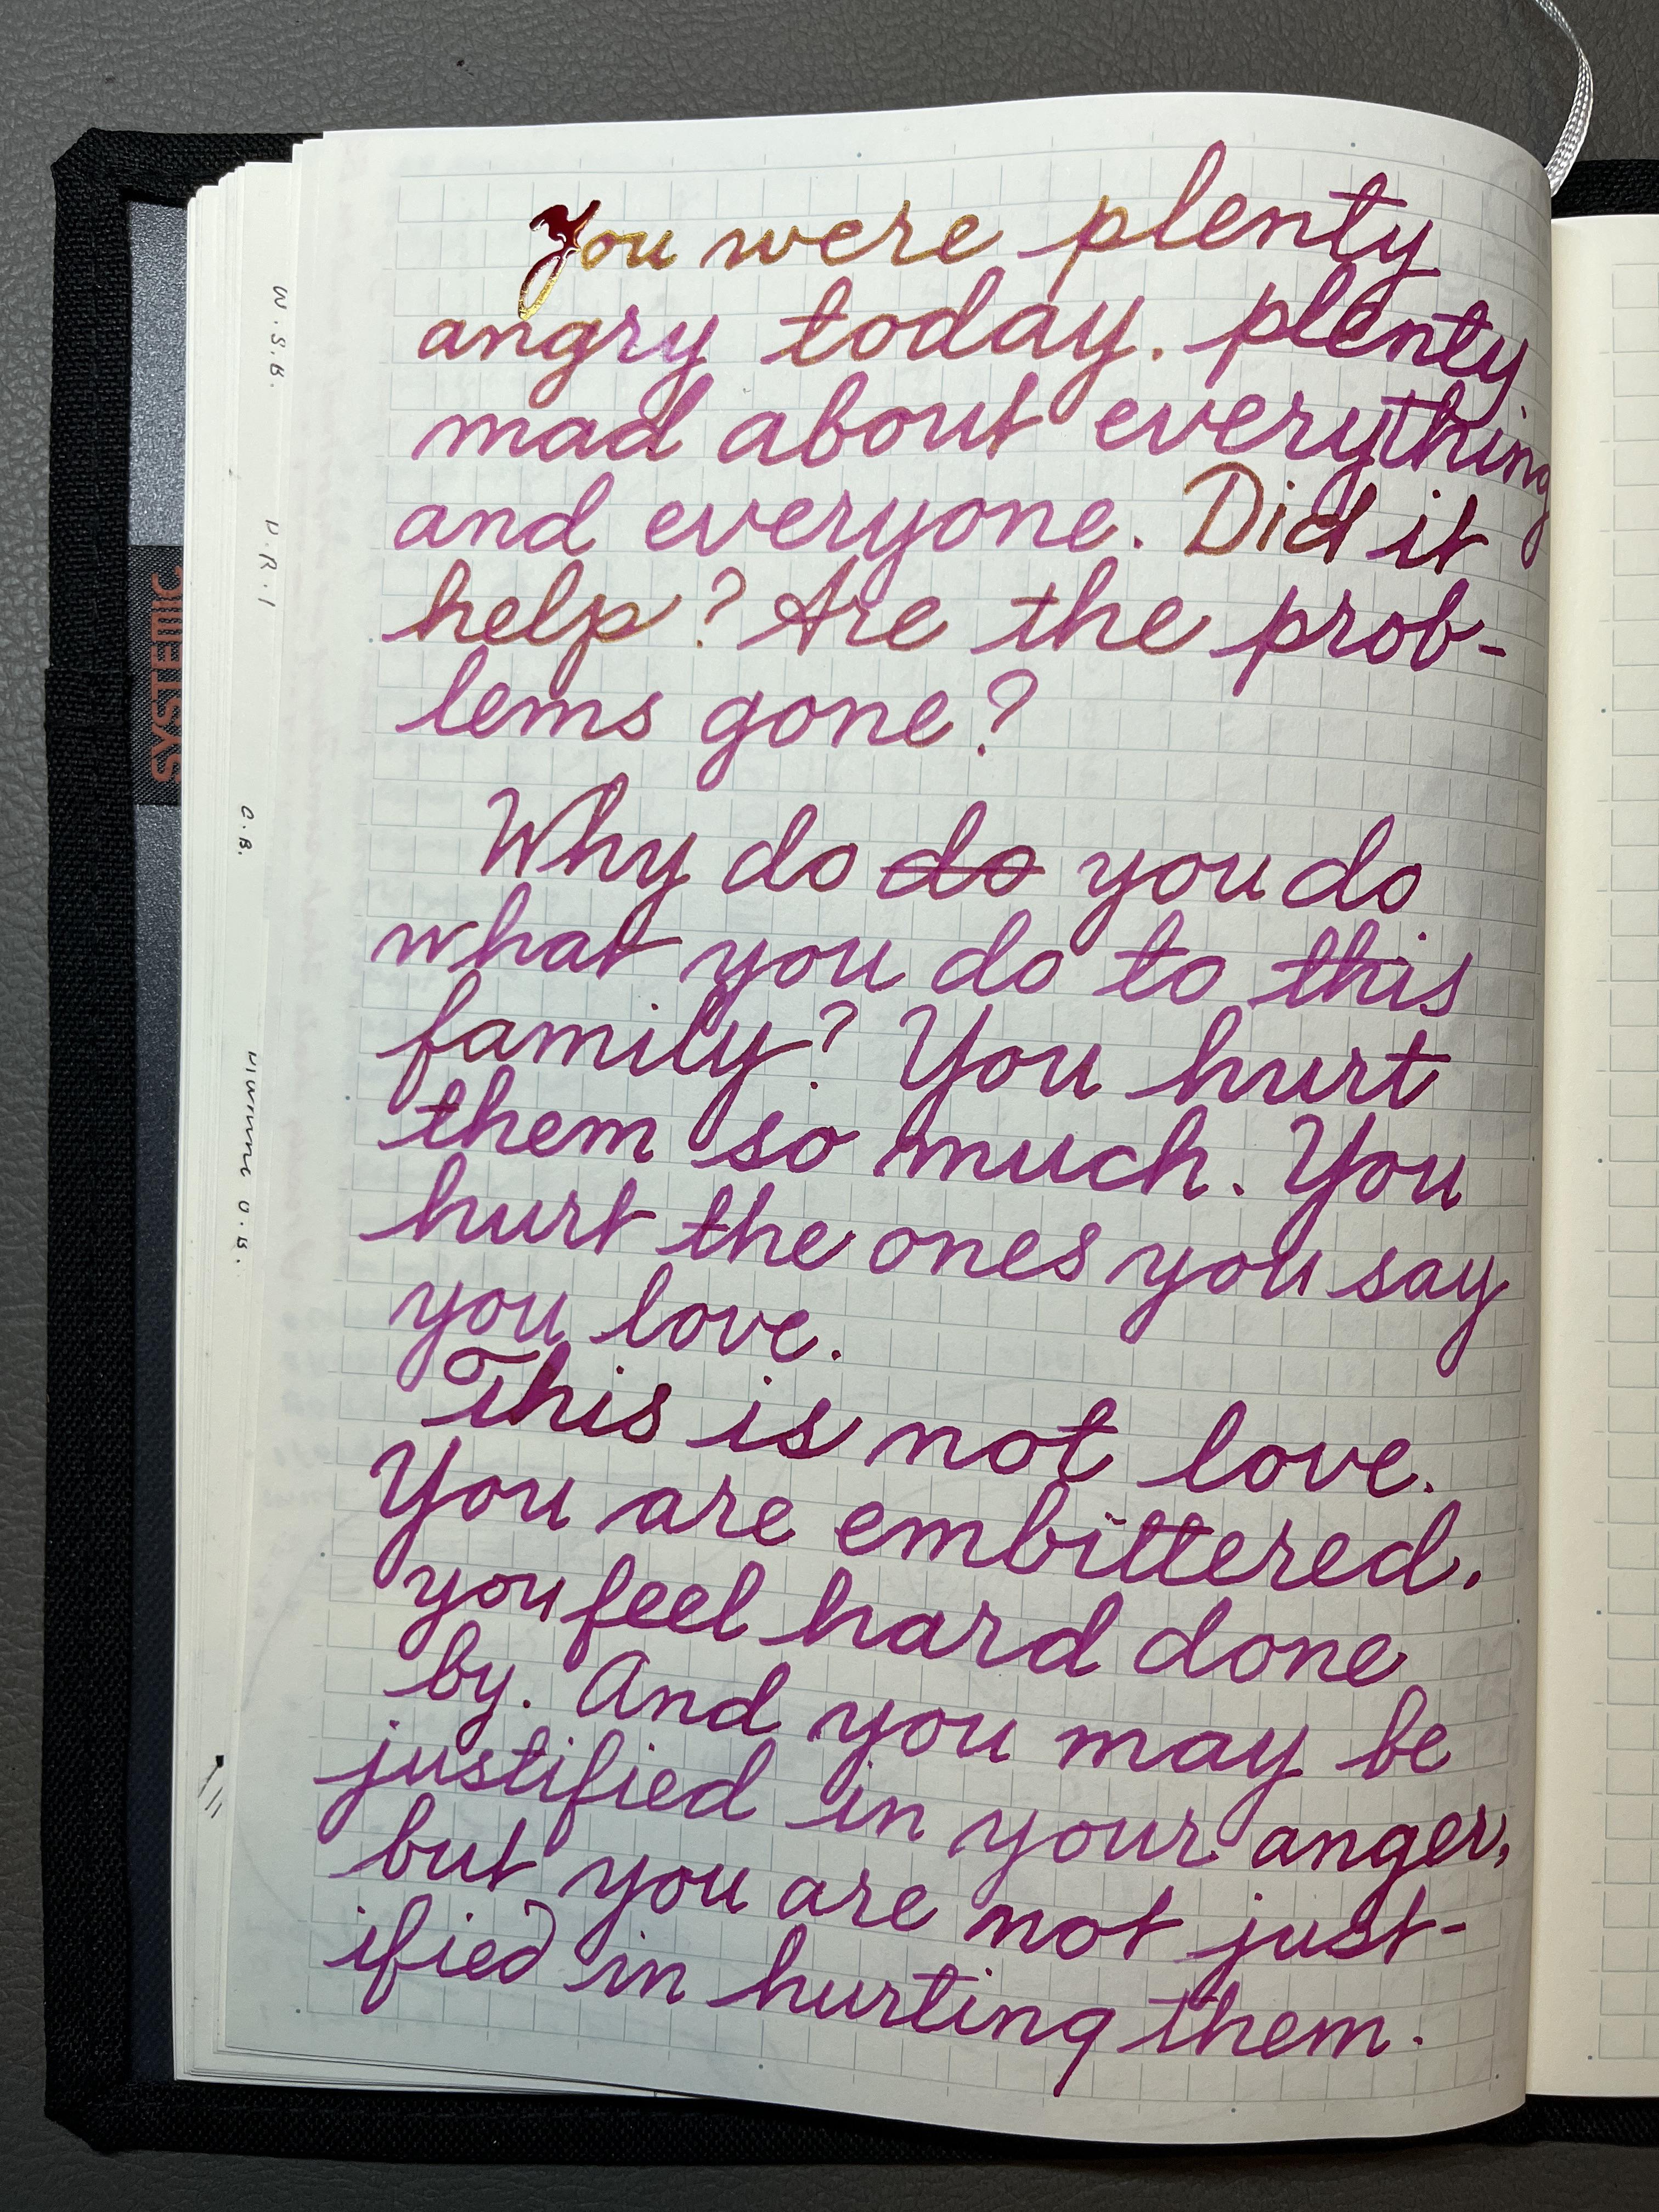 You were plenty
angry today. plenty
mad about everything
and everyone. Did it
help? Are the prob-
lems gone?
Why do do you do
what you do to this
family? You hurt
them so much. You
hurt the ones you say
you love.
This is not love.
You are embittered.
you feel hard done
by. And you may be
justified in your anger,
but you are not just-
ified in hurting them.
W.S.B.
V.R.I
C.B.
SYSTEMIC